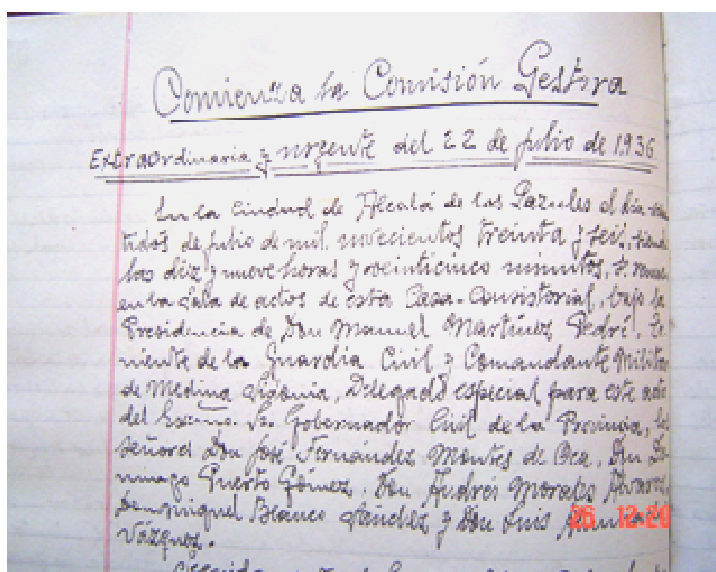 Comienza la Comisión Gestora
Extraordinaria y urgente del 22 de Julio de 1.936
En la Ciudad de Alcalá de los Gazules el día
tidos de julio de mil novecientos treinta y seis, siendo
las diez y nueve horas y veinticinco minutos, se
en la Sala de actos de esta Casa-Consistorial, bajo la
Presidencia de Don Manuel Martínez Pedré, Te
niente de la Guardia Civil y Comandante Militar
de Medina Sidonia, Delegado especial para este acto
del Excmo. Sr. Gobernador Civil de la Provincia, los
señores Don José Fernández Montes de Oca, Don Do
mingo Puerto Gómez, Don Andrés Morales Álvarez,
Don Miguel Blanco Sánchez y Don Luis
Vázquez.
26 12 20